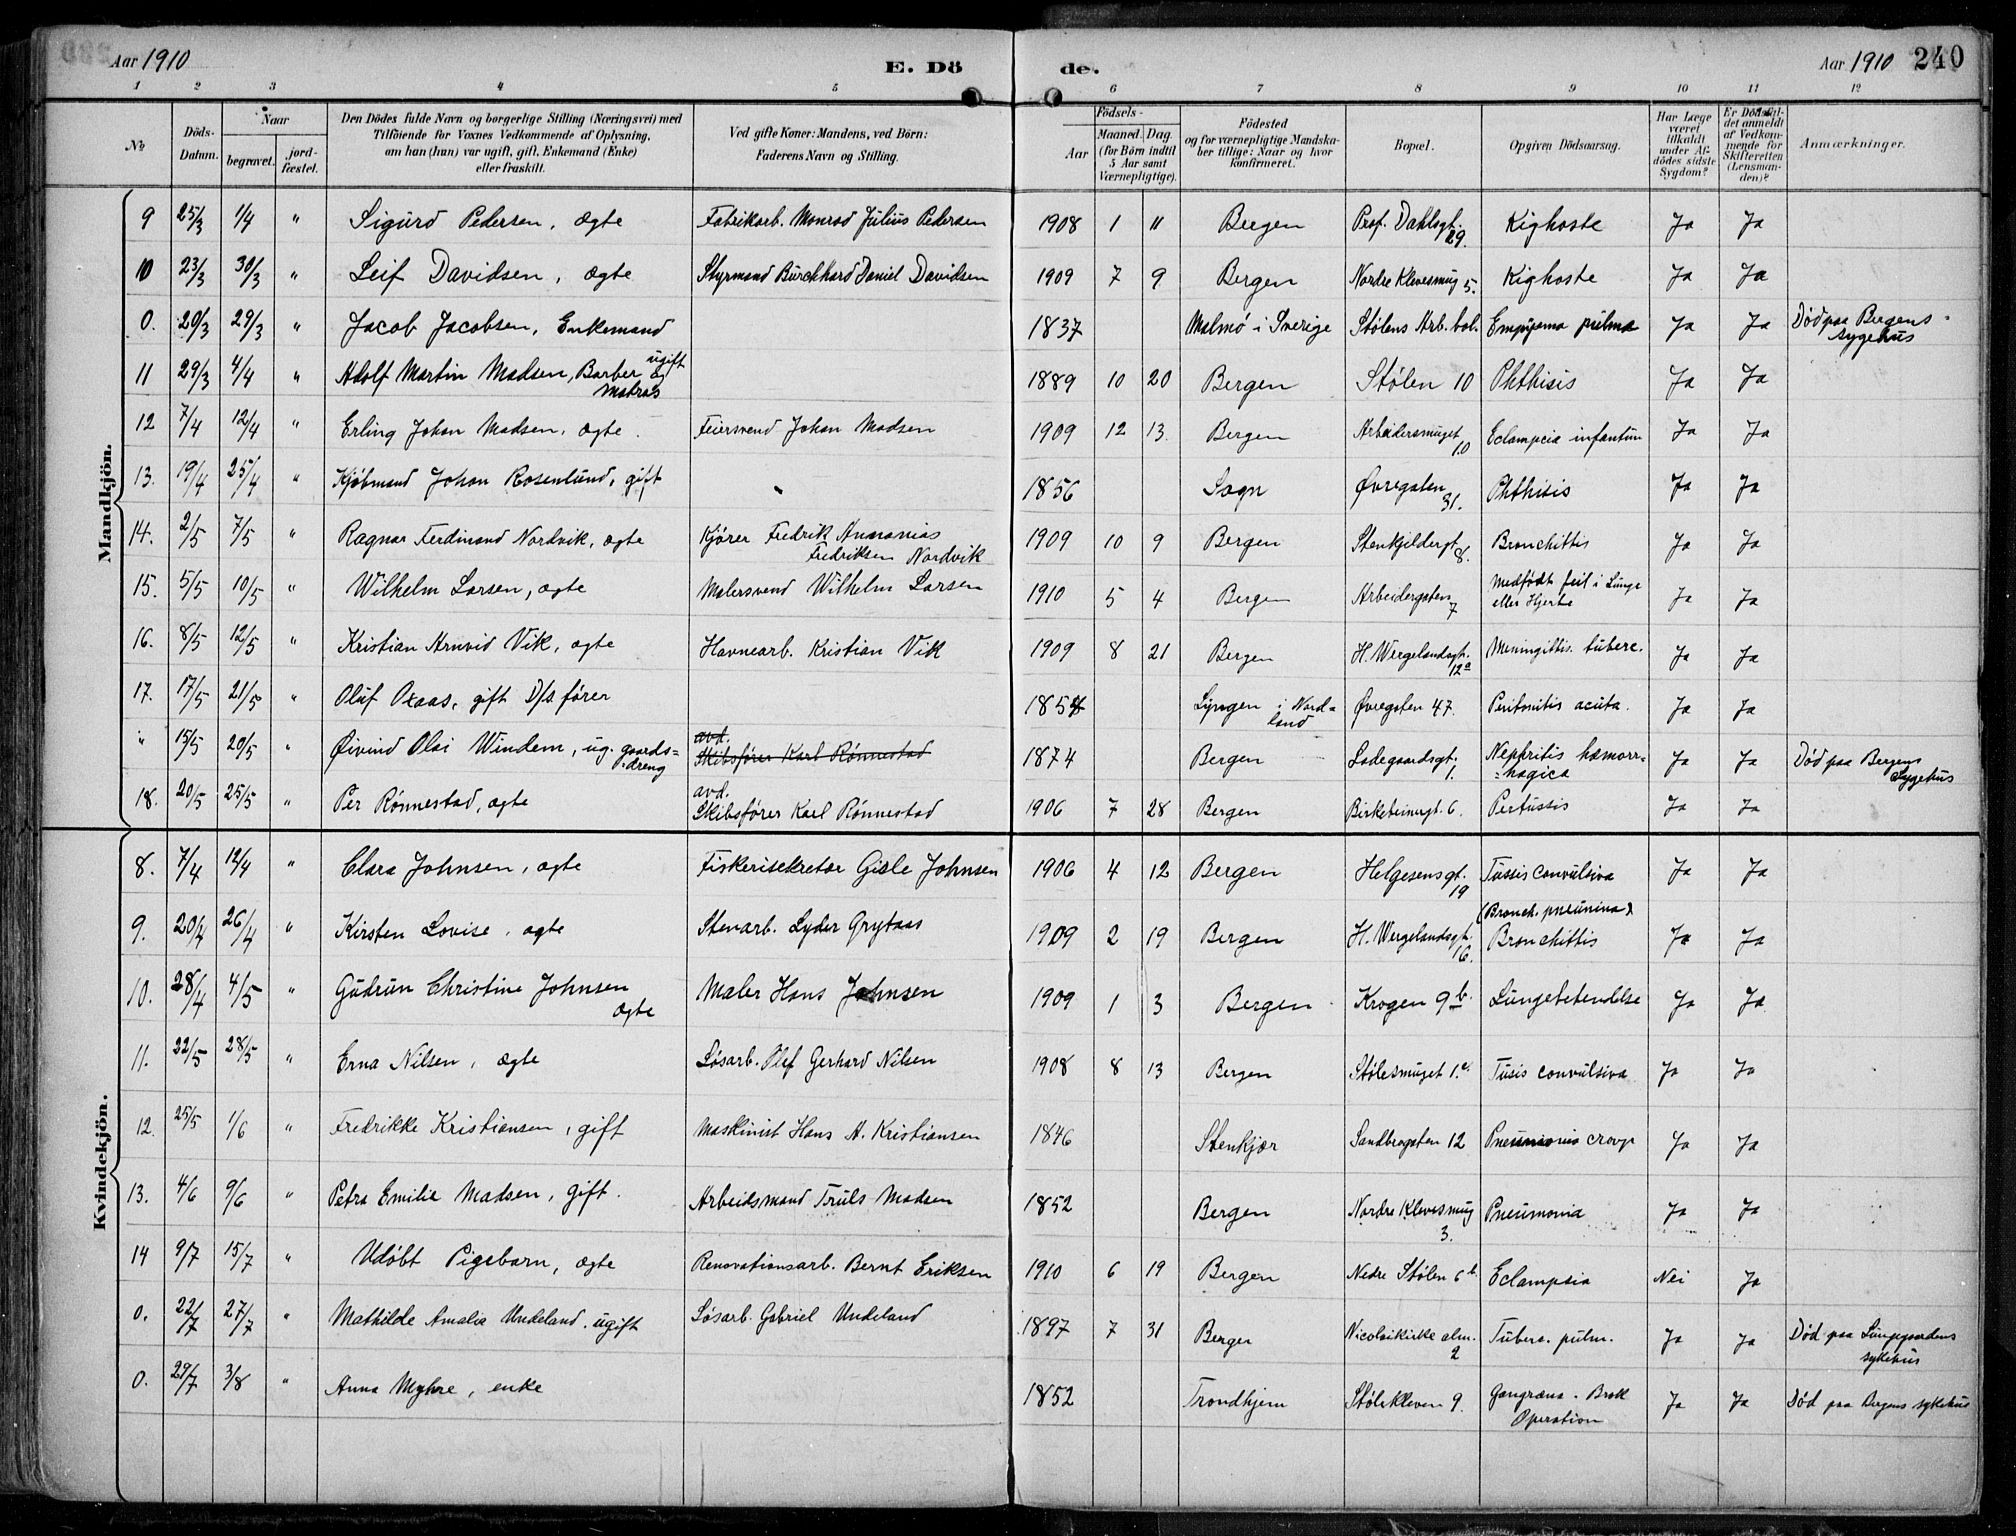 Aar 1910 E. Dö de. Aar 1910 240
1 2 3 4 5 6 7 8 9 10 11 12
№ Döds-Datum. Naar begravet. jord-fæstet. Den Dödes fulde Navn og borgerlige Stilling (Næringsvei) med Tilföiende for Voxnes Vedkommende af Oplysning, om han (hun) var ugift, gift, Enkemand (Enke) eller fraskilt. Ved gifte Koner: Mandens, ved Börn: Faderens Navn og Stilling. Födsels- Aar Maaned. Dag. (for Börn indtil 5 Aar samt Værnepligtige). Födested og for værnepligtige Mandskaber tillige: Naar og hvor konfirmeret. Bopæl. Opgiven Dödsaarsag. Har Læge været tilkaldt under Afdödes sidste Sygdom? Er Dödsfaldet anmeldt af Vedkommende for Skifteretten (Lensmanden)? Anmærkninger.
Mandkjön.
9 25/3 1/4 " Sigurd Pedersen, ægte Fabrikarb. Monrad Julius Pedersen 1908 1 11 Bergen Prof. Dahlsgt. 29 Kighoste Ja Ja
10 23/3 30/3 " Leif Davidsen, ægte Styrmand Burchhard Daniel Davidsen 1909 7 9 Bergen Nordre Klevesmug 5. Kighoste Ja Ja
0. 20/3 29/3 " Jacob Jacobsen, Enkemand 1837 Malmø i Sverige Stølens Arb. bol. Empyema pulma Ja Ja Død paa Bergens sygehus
11 29/3 4/4 " Adolf Martin Madsen, Barber og Matros ugift 1889 10 20 Bergen Stølen 10 Phthisis Ja Ja
12 7/4 12/4 " Erling Johan Madsen, ægte. Feiersvend Johan Madsen 1909 12 13. Bergen Arbeidersmuget 10 Eclampcia infantum Ja Ja
13. 19/4 25/4 " Kjøbmand Johan Rosenlund, gift 1856 Sogn Øvregaten 31. Phthisis Ja Ja
14. 2/5 7/5 " Ragnar Ferdinand Nordvik, ægte Kjører Fredrik Ananias Fredriksen Nordvik 1909 10 9 Bergen Stenkjeldergt. 8. Bronchittis Ja Ja
15. 5/5 10/5 " Wilhelm Larsen, ægte Malersvend Wilhelm Larsen 1910 5 4 Bergen Arbeidergaten 7 Medfødt feil i Lunge eller Hjerte Ja Ja
16. 8/5 12/5 " Kristian Arnvid Vik, ægte Havnearb. Kristian Vik 1909 8 21 Bergen H. Wergelandsgt. 12a Meningittis. tuberc. Ja Ja
17. 17/5 21/5 " Oluf Oxaas, gift D/s fører 1854 Lyngen i Nordland Øvregaten 47. Peritonitis acuta. Ja Ja
" 15/5 20/5 " Øivind Olai Windem, ug. gaardsdreng avd. Skibsfører Karl Rønnestad 1874 Bergen Ladegaardsgt. 1. Nephritis hæmorrhagica Ja Ja Død paa Bergens Sygehus
18. 20/5 25/5 " Per Rønnestad, ægte avd. Skibsfører Karl Rønnestad 1906 7 28 Bergen Birkebeinergt. 6. Pertussis Ja Ja
Kvindekjön.
8. 7/4 12/4 " Clara Johnsen, ægte Fiskerisekretær Gisle Johnsen 1906 4 12 Bergen Helgesensgt. 19 Tussis convulsiva Ja Ja
9. 20/4 26/4 " Kirsten Lovise, ægte Stenarb. Lyder Grytaas 1909 2 19 Bergen H. Wergelandsgt. 16. (Bronch. pneunina) Bronchittis Ja Ja
10. 28/4 4/5 " Gudrun Christine Johnsen ægte Maler Hans Johnsen 1909 1 3 Bergen Krogen 9b. Lungebetendelse Ja Ja
11. 22/5 28/5 " Erna Nilsen, ægte Løsarb. Olef Gerhard Nilsen 1908 8 13 Bergen Stølesmuget 1.c Tusis convulsiva Ja Ja
12. 25/5 1/6 " Fredrikke Kristiansen, gift Maskinist Hans A. Kristiansen 1846 Stenkjær Sandbrogaten 12 croup Ja Ja
13. 4/6 9/6 " Petra Emilie Madsen, gift. Arbeidsmand Truls Madsen 1852 Bergen Nordre Klevesmug 3. Pneumonia Ja Ja
14 9/7 15/7 " Udøbt Pigebarn, ægte Renovationsarb. Bernt Eriksen 1910 6 19 Bergen Nedre Stølen 6b Eclampsia Nei Ja
0. 22/7 27/7 " Mathilde Amalia Undeland. ugift Løsarb. Gabriel Undeland 1897 7 31 Bergen Nicolaikirke alm. 2 Tuberc. pulm. Ja Ja Død paa Lungegaardens sykehus
0. 29/7 3/8 " Anna Myhre, enke 1852 Trondhjem Stølekleven 9. Gangræna. Brok Operation Ja Ja Død paa Bergens sykehus